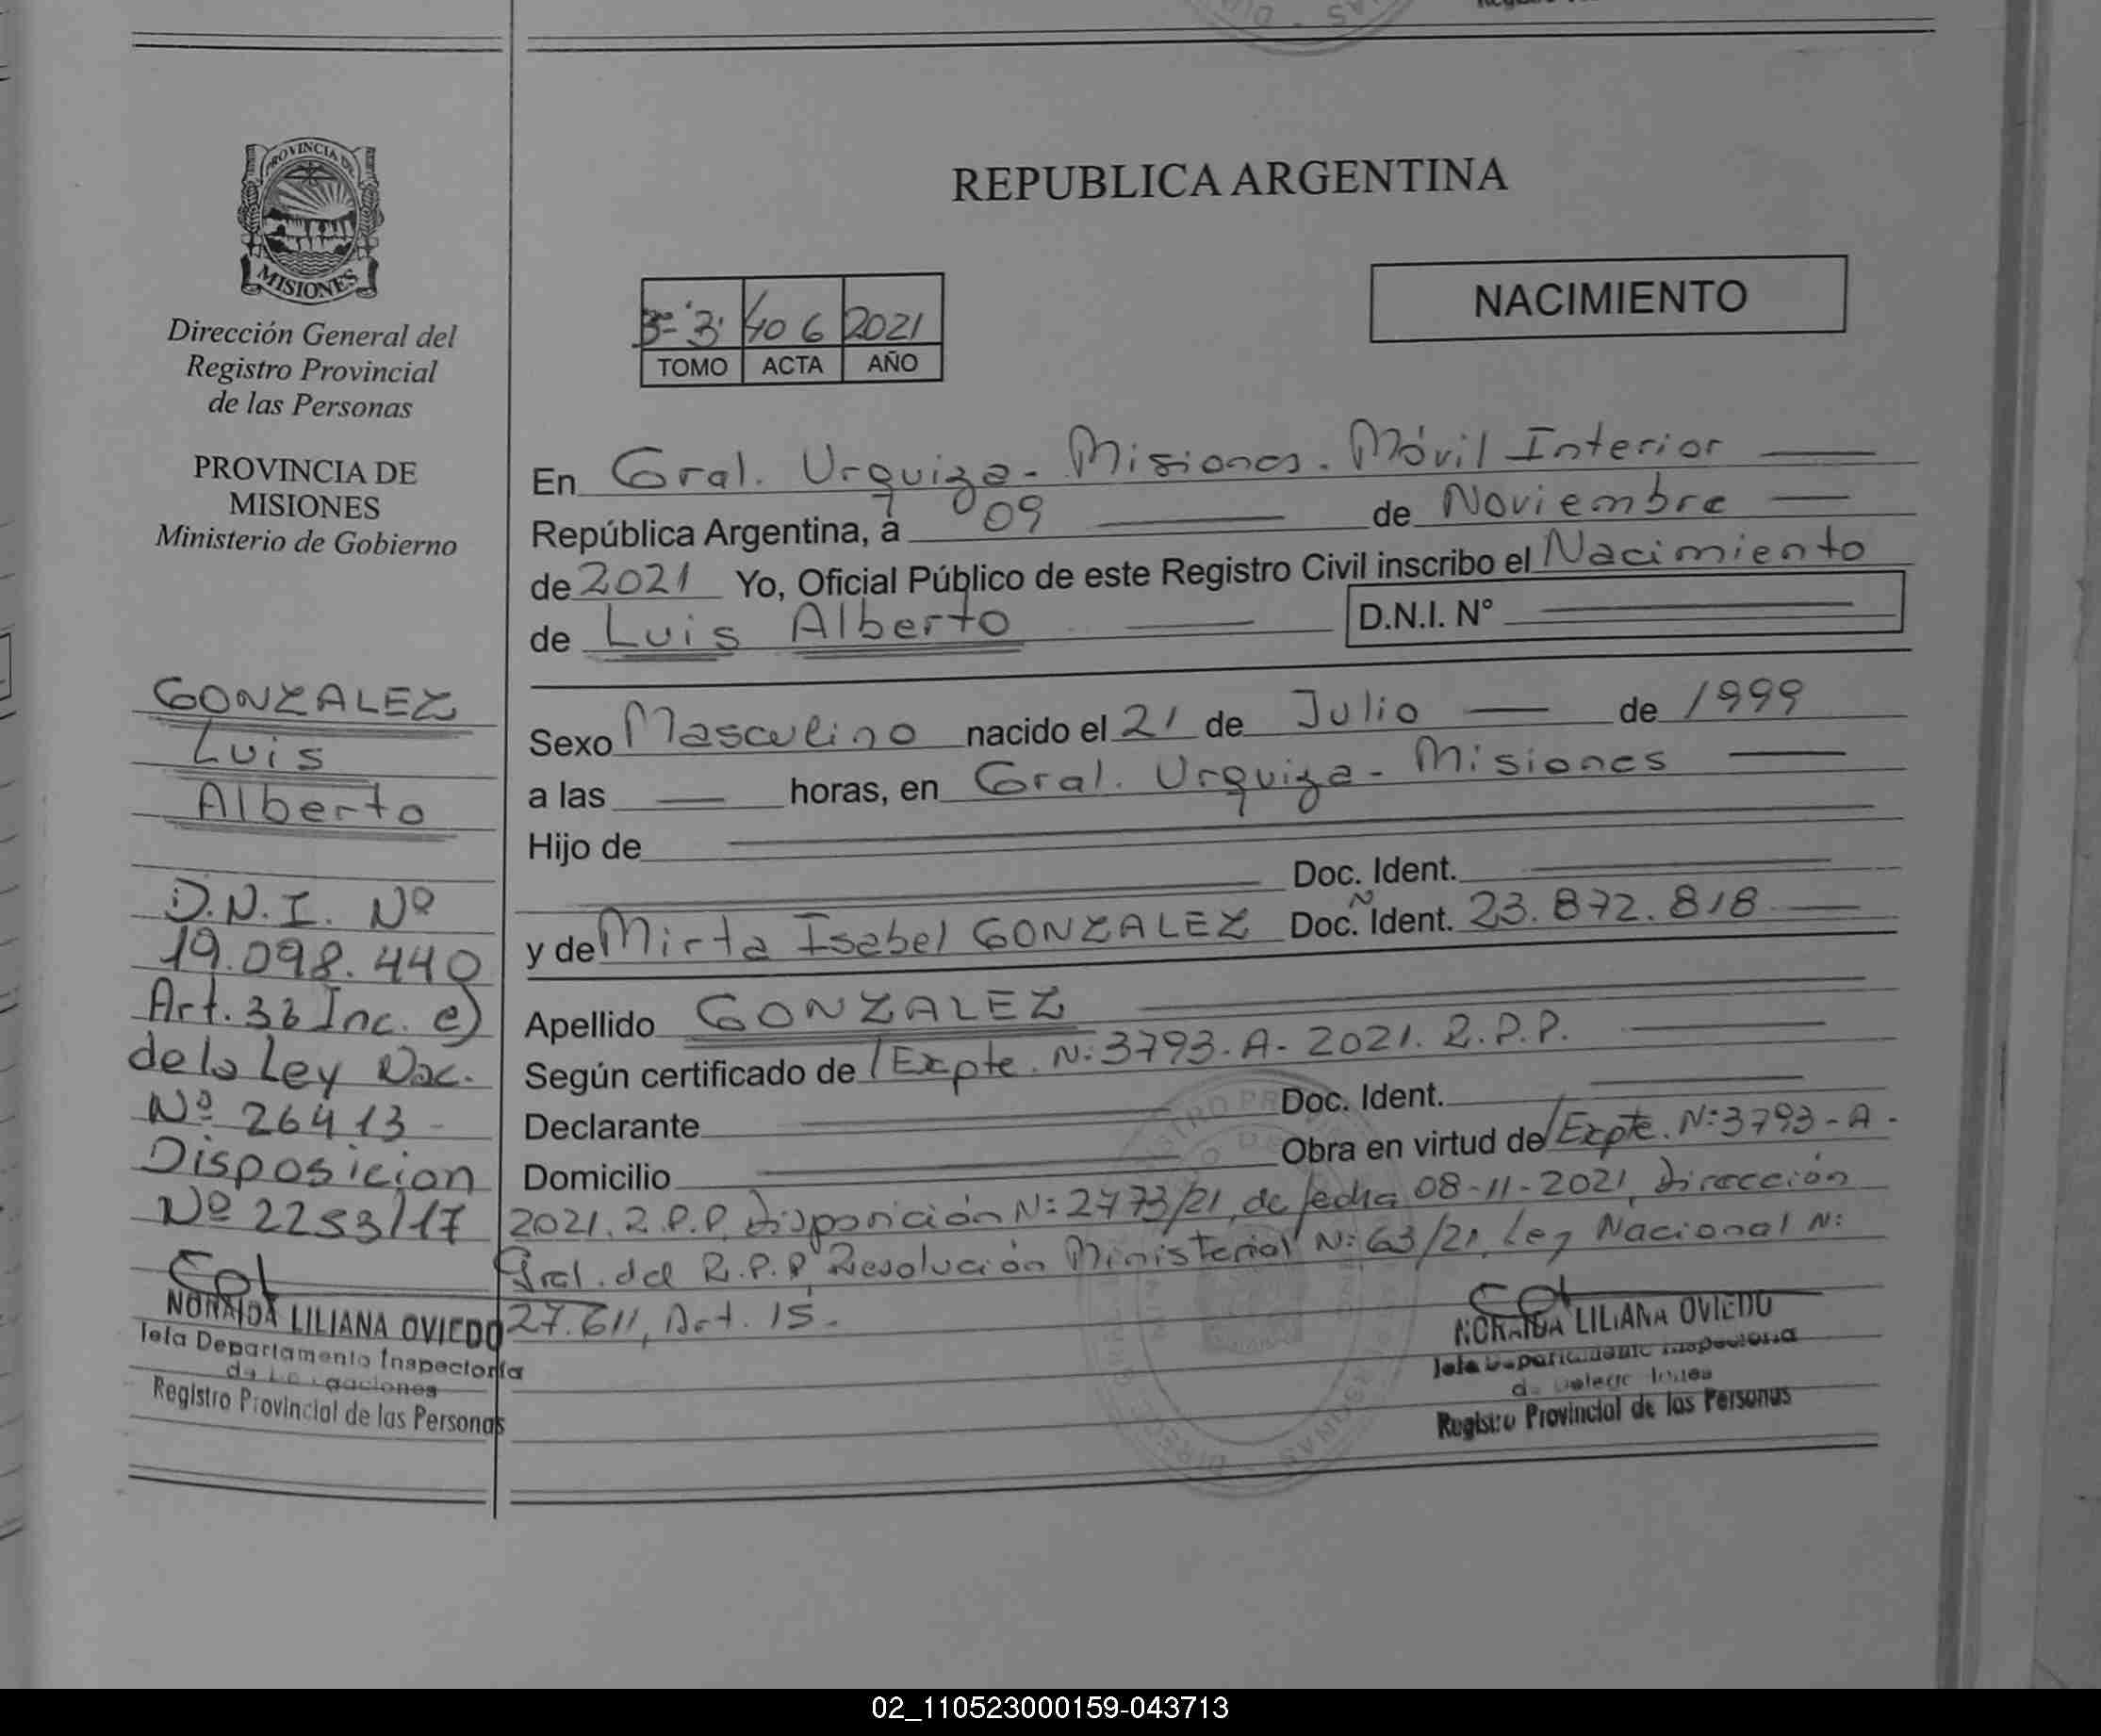 PROVINCIA DE
MISIONES
Dirección General del
Registro Provincial
de las Personas
PROVINCIA DE
MISIONES
Ministerio de Gobierno
GONZALEZ
Luis
Alberto
D.N.I. Nº
19.098.440
Art. 36 Inc. e)
de la Ley Nac.
Nº 26413
Disposicion
Nº 2253/17
NORAIDA LILIANA OVIEDO
Jefa Departamento Inspectoría
Registro Provincial de las Personas
REPUBLICA ARGENTINA
NACIMIENTO
3' 406 2021
TOMO ACTA AÑO
En Gral. Urquiza - Misiones. Móvil Interior
República Argentina, a 09 de Noviembre
de 2021 Yo, Oficial Público de este Registro Civil inscribo el Nacimiento
de Luis Alberto D.N.I. N°
Sexo Masculino nacido el 21 de Julio de 1999
a las horas, en Gral. Urquiza - Misiones
Hijo de
Doc. Ident.
y de Mirta Isabel GONZALEZ Doc. Ident. N: 23.872.818
Apellido GONZALEZ
Según certificado de /Expte. N: 3793-A-2021. R.P.P.
Declarante Doc. Ident.
Domicilio Obra en virtud de /Expte. N: 3793-A-
2021. R.P.P, Disposición N: 2473/21, de fecha 08-11-2021, Dirección
Gral. del R.P.P, Resolución Ministerial N: 63/21, Ley Nacional N:
27.611, Art. 15.
NORAIDA LILIANA OVIEDO
Jefa Departamento Inspectoria
Registro Provincial de las Personas
02_110523000159-043713